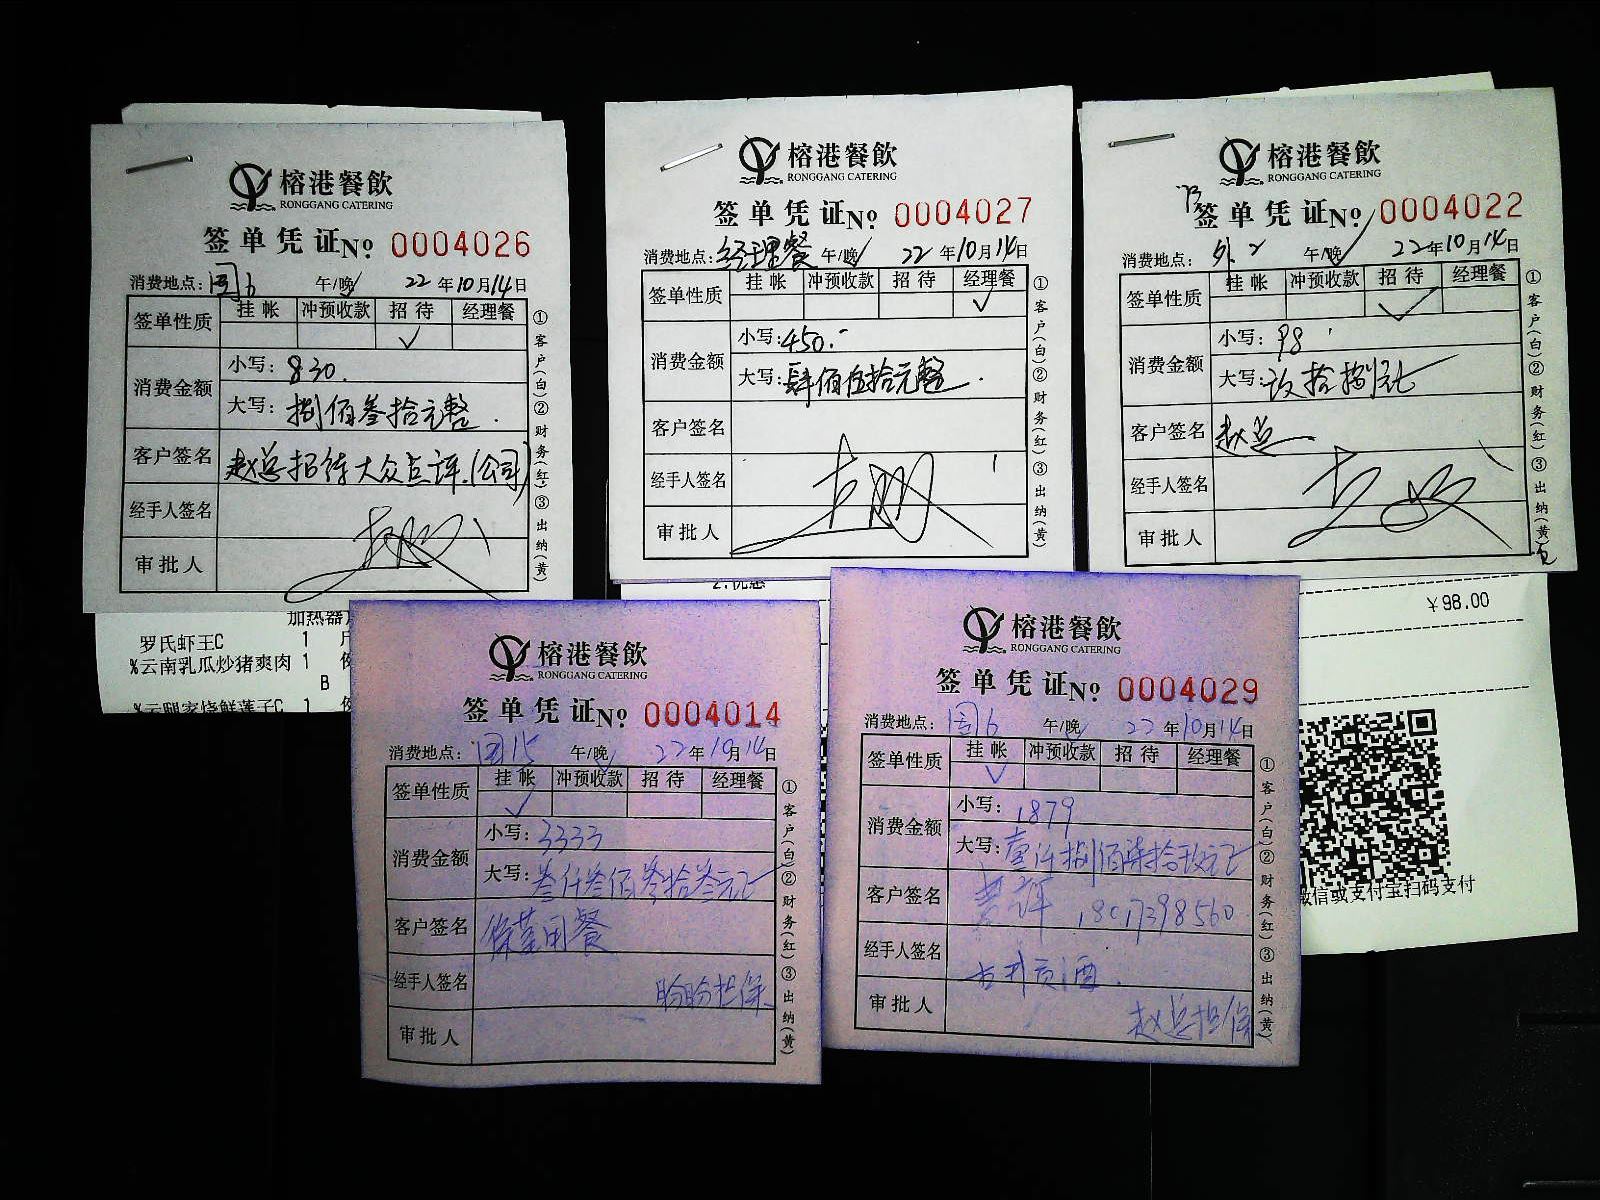 榕港餐飲
RONGGANG CATERING
签单凭证No 0004026
消费地点: 国6 午/晚 22年10月14日
签单性质 挂帐 冲预收款 招待 经理餐
✓
消费金额 小写: 830.
大写: 捌佰叁拾元整.
客户签名 赵总招待大众点评.(公司)
经手人签名
审批人
①客户(白)②财务(红)③出纳(黄)
加热器
罗氏虾王C 1
%云南乳瓜炒猪爽肉 1
B
%云腿家烧鲜莲子C 1
榕港餐飲
RONGGANG CATERING
签单凭证No 0004027
消费地点: 经理餐 午/晚 22年10月14日
签单性质 挂帐 冲预收款 招待 经理餐
✓
消费金额 小写: 450.-
大写: 肆佰伍拾元整.
客户签名
经手人签名
审批人
①客户(白)②财务(红)③出纳(黄)
榕港餐飲
RONGGANG CATERING
签单凭证No 0004022
消费地点: 外2 午/晚 22年10月14日
签单性质 挂帐 冲预收款 招待 经理餐
✓
消费金额 小写: 98
大写: 玖拾捌元
客户签名 赵总
经手人签名
审批人
①客户(白)②财务(红)③出纳(黄)
¥98.00
微信或支付宝扫码支付
榕港餐飲
RONGGANG CATERING
签单凭证No 0004014
消费地点: 国15 午/晚 22年10月14日
签单性质 挂帐 冲预收款 招待 经理餐
✓
消费金额 小写: 3333
大写: 叁仟叁佰叁拾叁元正
客户签名 用餐
经手人签名 盼盼担保
审批人
①客户(白)②财务(红)③出纳(黄)
榕港餐飲
RONGGANG CATERING
签单凭证No 0004029
消费地点: 国6 午/晚 22年10月14日
签单性质 挂帐 冲预收款 招待 经理餐
✓
消费金额 小写: 1879
大写: 壹仟捌佰柒拾玖元正
客户签名 18017398560
经手人签名 古井贡酒.
审批人 赵总担保
①客户(白)②财务(红)③出纳(黄)